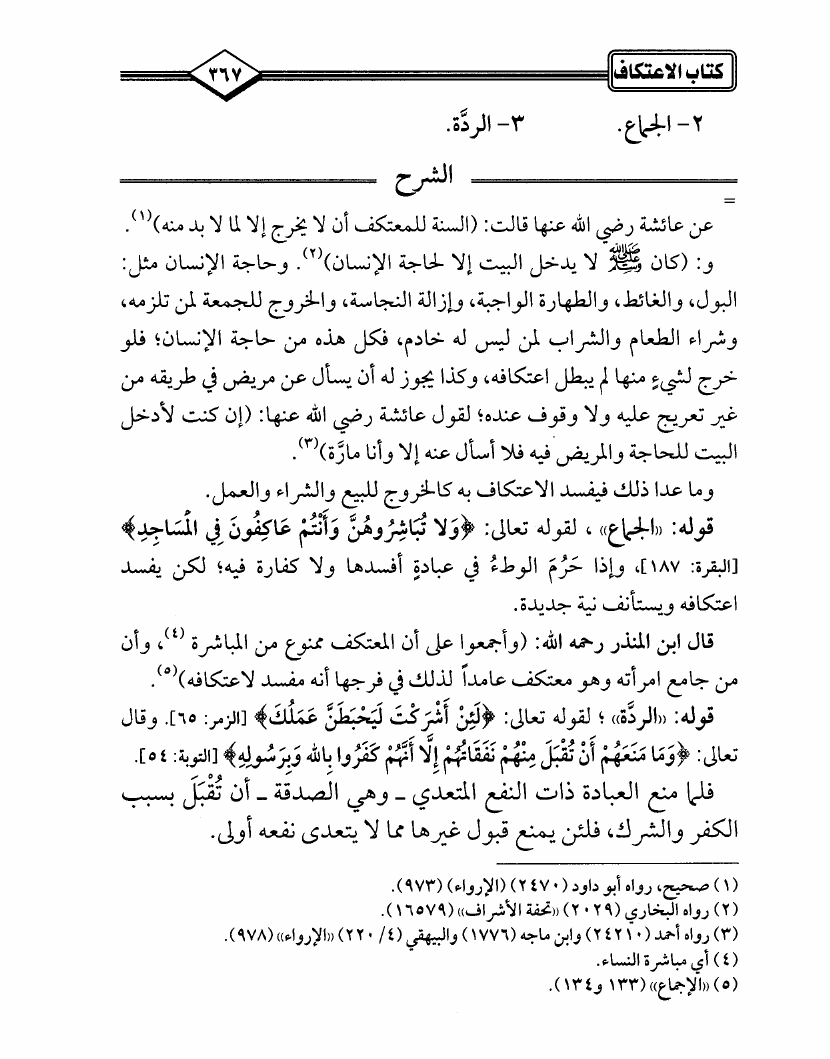 كتاب الاعتكاف ٣٦٧
٢- الجماع. ٣- الردَّة.
الشرح
=
عن عائشة رضي الله عنها قالت: (السنة للمعتكف أن لا يخرج إلا لما لا بد منه)(١).
و: (كان ﷺ لا يدخل البيت إلا لحاجة الإنسان)(٢). وحاجة الإنسان مثل:
البول، والغائط، والطهارة الواجبة، وإزالة النجاسة، والخروج للجمعة لمن تلزمه،
وشراء الطعام والشراب لمن ليس له خادم، فكل هذه من حاجة الإنسان؛ فلو
خرج لشيءٍ منها لم يبطل اعتكافه، وكذا يجوز له أن يسأل عن مريض في طريقه من
غير تعريج عليه ولا وقوف عنده؛ لقول عائشة رضي الله عنها: (إن كنت لأدخل
البيت للحاجة والمريض فيه فلا أسأل عنه إلا وأنا مارَّة)(٣).
وما عدا ذلك فيفسد الاعتكاف به كالخروج للبيع والشراء والعمل.
قوله: «الجماع» ، لقوله تعالى: ﴿وَلا تُبَاشِرُوهُنَّ وَأَنْتُمْ عَاكِفُونَ فِي الْمَسَاجِدِ﴾
[البقرة: ١٨٧]، وإذا حَرُمَ الوطءُ في عبادةٍ أفسدها ولا كفارة فيه؛ لكن يفسد
اعتكافه ويستأنف نية جديدة.
قال ابن المنذر رحمه الله: (وأجمعوا على أن المعتكف ممنوع من المباشرة (٤)، وأن
من جامع امرأته وهو معتكف عامداً لذلك في فرجها أنه مفسد لاعتكافه)(٥).
قوله: «الردَّة» ؛ لقوله تعالى: ﴿لَئِنْ أَشْرَكْتَ لَيَحْبَطَنَّ عَمَلُكَ﴾ [الزمر: ٦٥]. وقال
تعالى: ﴿وَمَا مَنَعَهُمْ أَنْ تُقْبَلَ مِنْهُمْ نَفَقَاتُهُمْ إِلَّا أَنَّهُمْ كَفَرُوا بِاللهِ وَبِرَسُولِهِ﴾ [التوبة: ٥٤].
فلما منع العبادة ذات النفع المتعدي ـ وهي الصدقة ـ أن تُقْبَلَ بسبب
الكفر والشرك، فلئن يمنع قبول غيرها مما لا يتعدى نفعه أولى.
(١) صحيح، رواه أبو داود (٢٤٧٠) (الإرواء) (٩٧٣).
(٢) رواه البخاري (٢٠٢٩) «تحفة الأشراف» (١٦٥٧٩).
(٣) رواه أحمد (٢٤٢١٠) وابن ماجه (١٧٧٦) والبيهقي (٤/ ٢٢٠) «الإرواء» (٩٧٨).
(٤) أي مباشرة النساء.
(٥) «الإجماع» (١٣٣ و١٣٤).